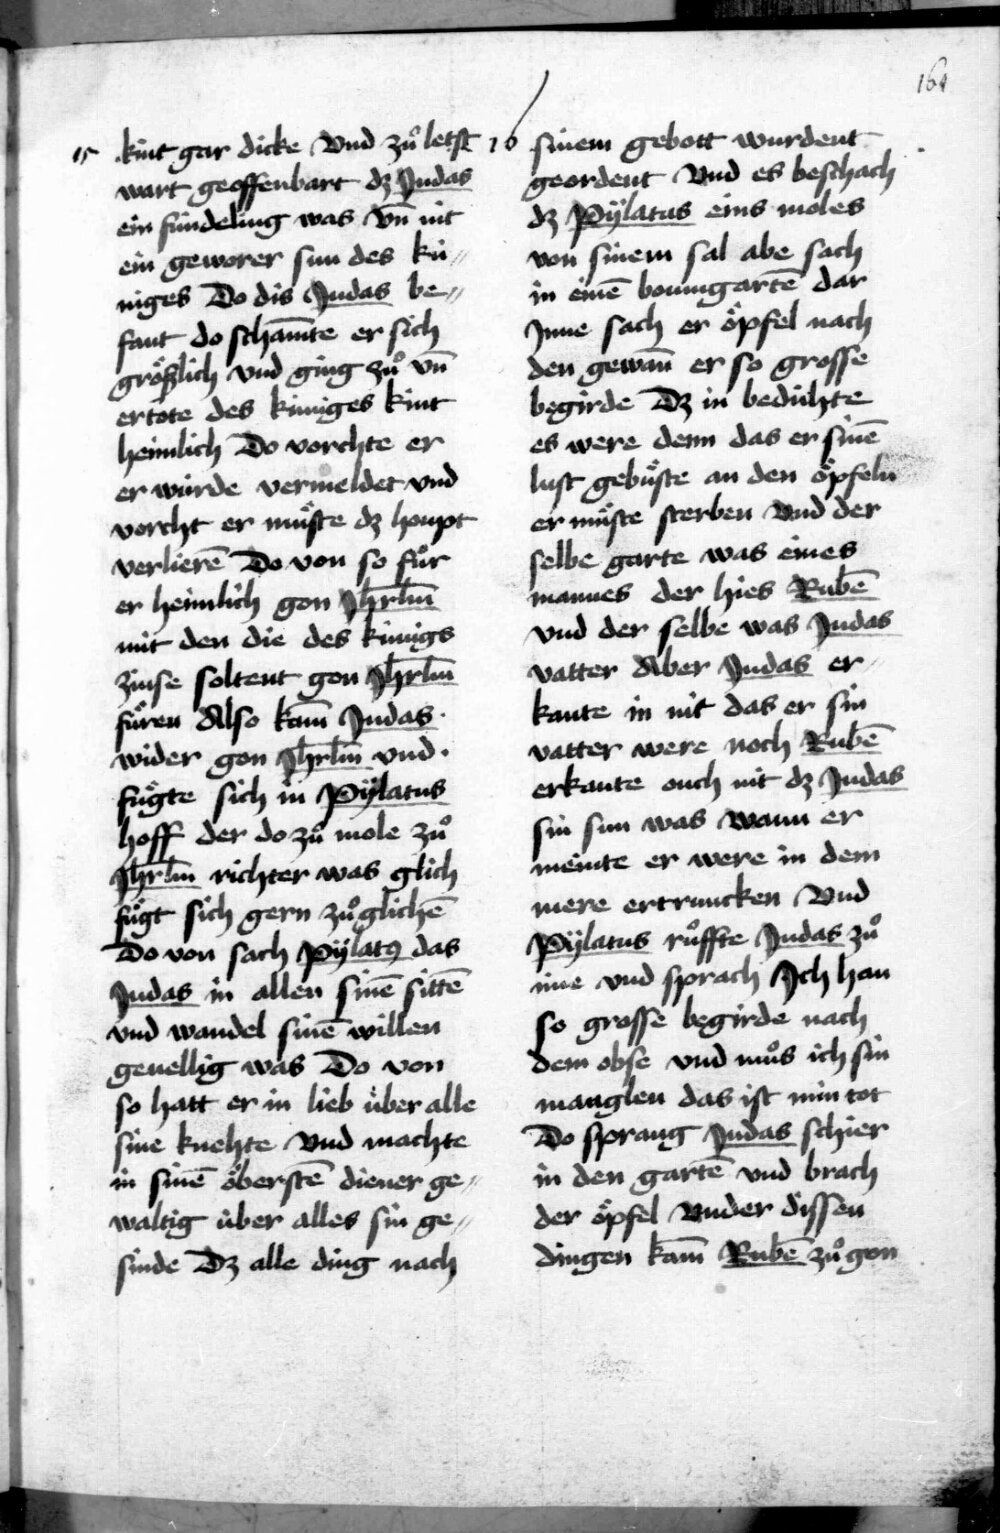 164
15 kint gar dicke Vnd zuͦ letst
wart geoffenbart dz Judas
ein fúndeling was vn̄ nit
ein geworer sun des kú〃
niges Do dis Judas be〃
fant do scham̄te er sich
groͤszlich vnd ging zuͦ vn̄
ertote des kúniges kint
heimlich Do vorchte er
er wúrde vermeldet vnd
vorcht er muͤste dz houpt
verlierē Do von so fuͦr
er heimlich gon Jhrlm̄
mit den die des kúnigs
zinse soltent gon Jhrlm̄
fuͤren Also kam̄ Judas
wider gon Jhrlm̄ vnd
fuͤgte sich in Pÿlatus
hoff der do zuͦ mole zuͦ
Jhrlm̄ richter was glich
fuͤgt sich gern zuͦ glichē
Do von sach Pÿlatꝰ das
Judas in allen sinē sittē
vnd wandel sinē willen
geuellig was Do von
so hatt er in lieb úber alle
sine knehte Vnd machte
in sinē oͤberstē diener ge〃
waltig úber alles sin ge〃
sinde Dz alle ding nach
16 sinem gebott wurdent
geordent Vnd es beschach
dz Pÿlatus eins moles
von sinem sal abe sach
in einē boumgartē dar
Jnne sach er oͤpfel nach
den gewan̄ er so grosse
begirde Dz in beduͤhte
es were denn das er sinē
lust gebuͤste an den oͤpfeln
er muͤste sterben Vnd der
selbe garte was eines
mannes der hies Rubē
vnd der selbe was Judas
vatter Aber Judas er〃
kante in nit das er sin
vatter were noch Rubē
erkante ouch nit dz Judas
sin sun was Wann er
meinte er were in dem
mere ertruncken Vnd
Pÿlatus ruͦffte Judas zuͦ
ime vnd sprach Jch han
so grosse begirde nach
dem obse vnd muͦs ich sin
manglen das ist min tot
Do sprang Judas schier
in den gartē vnd brach
der oͤpfel Vnder dissen
dingen kam̄ Rubē zuͦ gon